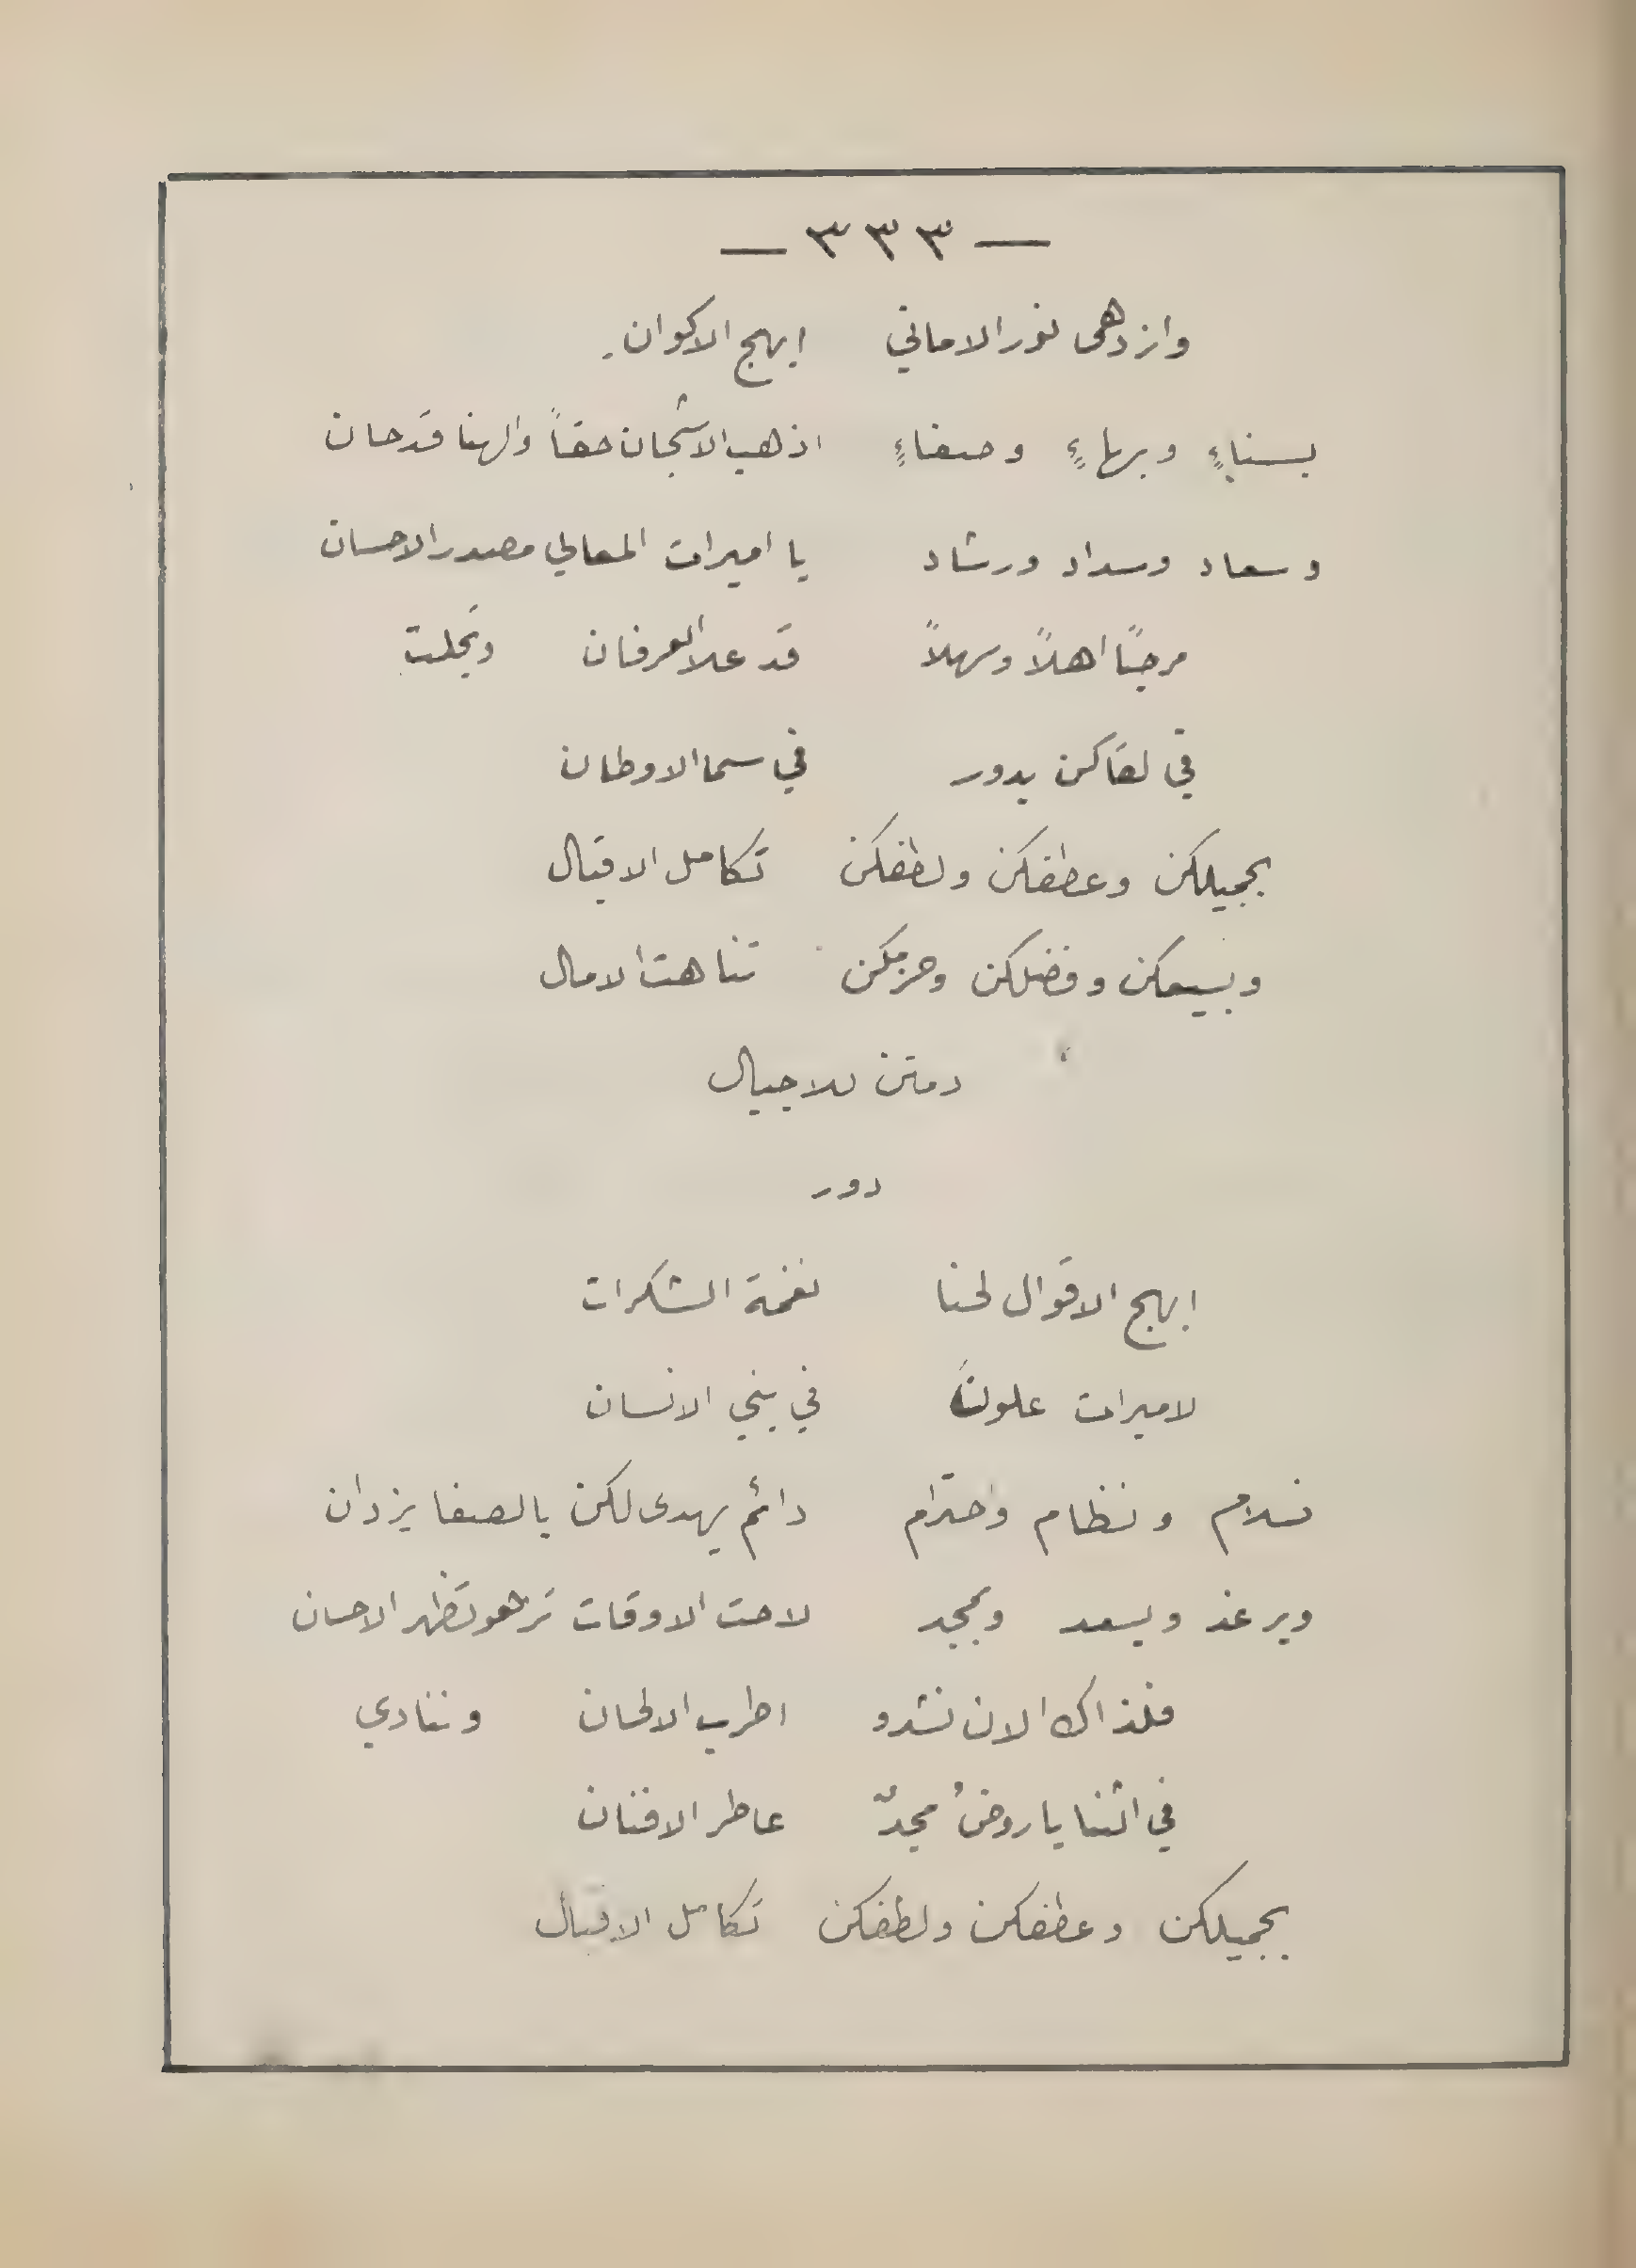 — ٣٣٣ —
وازدهى نور الاماني ابهج الاكوان
بسناءٍ وبهاءٍ وصفاءٍ اذهب الاشجان حقاً والهنا قد حان
وسعاد وسداد ورشاد يا اميرات المعالي مصدر الاحسان
مرحبًا اهلاً وسهلاً قد علا العرفان وتجلت
في لقاكن بدور في سما الاوطان
بجميلكن وعطفكن ولطفكن تكامل الاقبال
وبسيعكن وفضلكن وحزمكن تناهت الامال
دمتن للاجيال
دور
ابهج الاقوال لحنا نغمة الشكرات
لاميرات علونَ في بني الانسان
فسلام ونظام واحترام دائم يهدى لكن بالصفا يزدان
وبرغد وبسعد وبمجد لاحت الاوقات تزهو تظهر الاحسان
فلذاك الان نشدو اطرب الالحان وننادي
في الثنا ياروضُ مجدٌ عاطر الافنان
بجميلكن وعطفكن ولطفكن تكامل الاقبال